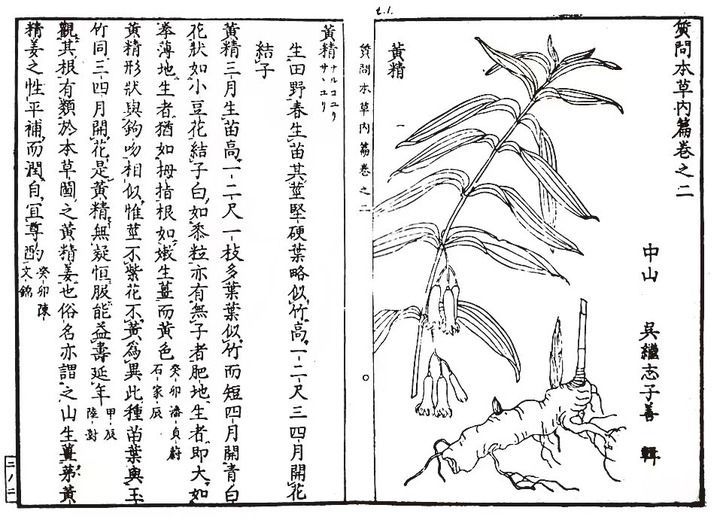 質問本草內篇卷之二
中山 吳繼志子善 輯
黃精
質問本草內篇卷之二 一
黃精 ナルコユリ サヽユリ
生田野春生苗其莖堅硬葉略似竹高一二尺三四月開花
結子
黃精三月生苗高一二尺一枝多葉葉似竹而短四月開青白
花狀如小豆花結子白如黍粒亦有無子者肥地生者即大如
拳薄地生者猶如拇指根如嫩生薑而黃色 癸卯潘貞蔚 石家辰
黃精形狀與鉤吻相似惟莖不紫花不黃為異此種苗葉與玉
竹同三四月開花是黃精無疑恒服能益壽延年 甲辰 陸澍
觀其根有類於本草圖之黃精姜也俗名亦謂之山生薑第黃
精姜之性平補而潤自宜尊酌 癸卯陳 文錦
二八二